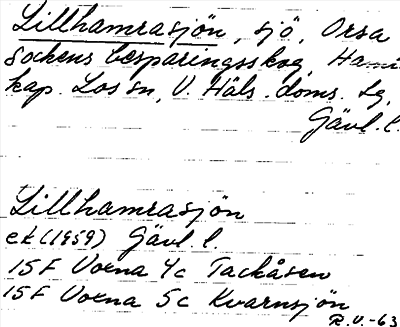 Lillhamrasjön, sjö, Orsa
Sockens besparingsskog, Hamra
kap. Los sn, V. Häls. doms. sg,
Gävl. l.
Lillhamrasjön
ek (1959) Gävl. l.
15F Voxna 4c Tackåsen
15F Voxna 5c Kvarnsjön
R.V.-63